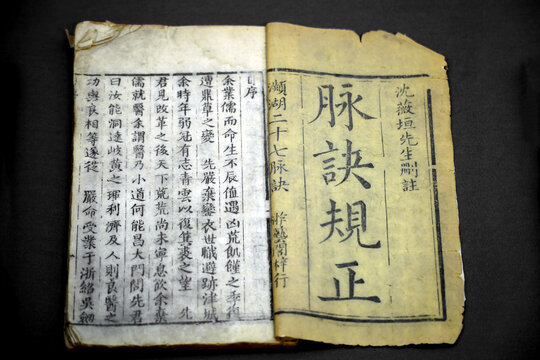 沈薇垣先生刪註
脉訣規正
瀕湖二十七脉訣 梓行
自序
余業儒而命生不辰值遇凶荒飢饉之季
遭鼎革之變 先嚴棄衣世職避跡津城
余時年弱冠有志青雲以復箕裘之望 先
君見改革之後天下荒荒尚未寧息欲余棄
儒就醫余謂醫乃小道何能昌大門閭先君
曰汝能洞達岐黃之理利濟及人則良醫之
功與良相等遂從 嚴命受業于浙紹吳